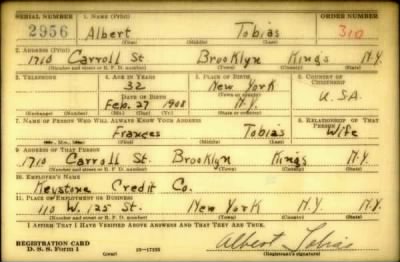 SERIAL NUMBER 1. NAME (Print) ORDER NUMBER
2956 Albert Tobias 310
(First) (Middle) (Last)
2. ADDRESS (Print)
1710 Carroll St Brooklyn Kings N.Y.
(Number and street or R. F. D. number) (Town) (County) (State)
3. TELEPHONE 4. AGE IN YEARS 5. PLACE OF BIRTH 6. COUNTRY OF CITIZENSHIP
32 New York
DATE OF BIRTH (Town or county)
Feb. 27 1908 N.Y. U.S.A.
(Exchange) (Number) (Mo.) (Day) (Yr.) (State or country)
7. NAME OF PERSON WHO WILL ALWAYS KNOW YOUR ADDRESS 8. RELATIONSHIP OF THAT PERSON
Frances Tobias Wife
(Mr., Mrs., Miss) (First) (Middle) (Last)
9. ADDRESS OF THAT PERSON
1710 Carroll St. Brooklyn Kings N.Y.
(Number and street or R. F. D. number) (Town) (County) (State)
10. EMPLOYER'S NAME
Keystone Credit Co.
11. PLACE OF EMPLOYMENT OR BUSINESS
110 W. 125 St. New York N.Y. N.Y.
(Number and street or R. F. D. number) (Town) (County) (State)
I AFFIRM THAT I HAVE VERIFIED ABOVE ANSWERS AND THAT THEY ARE TRUE.
REGISTRATION CARD
D. S. S. Form 1 Albert Tobias
(over) (Registrant's signature)